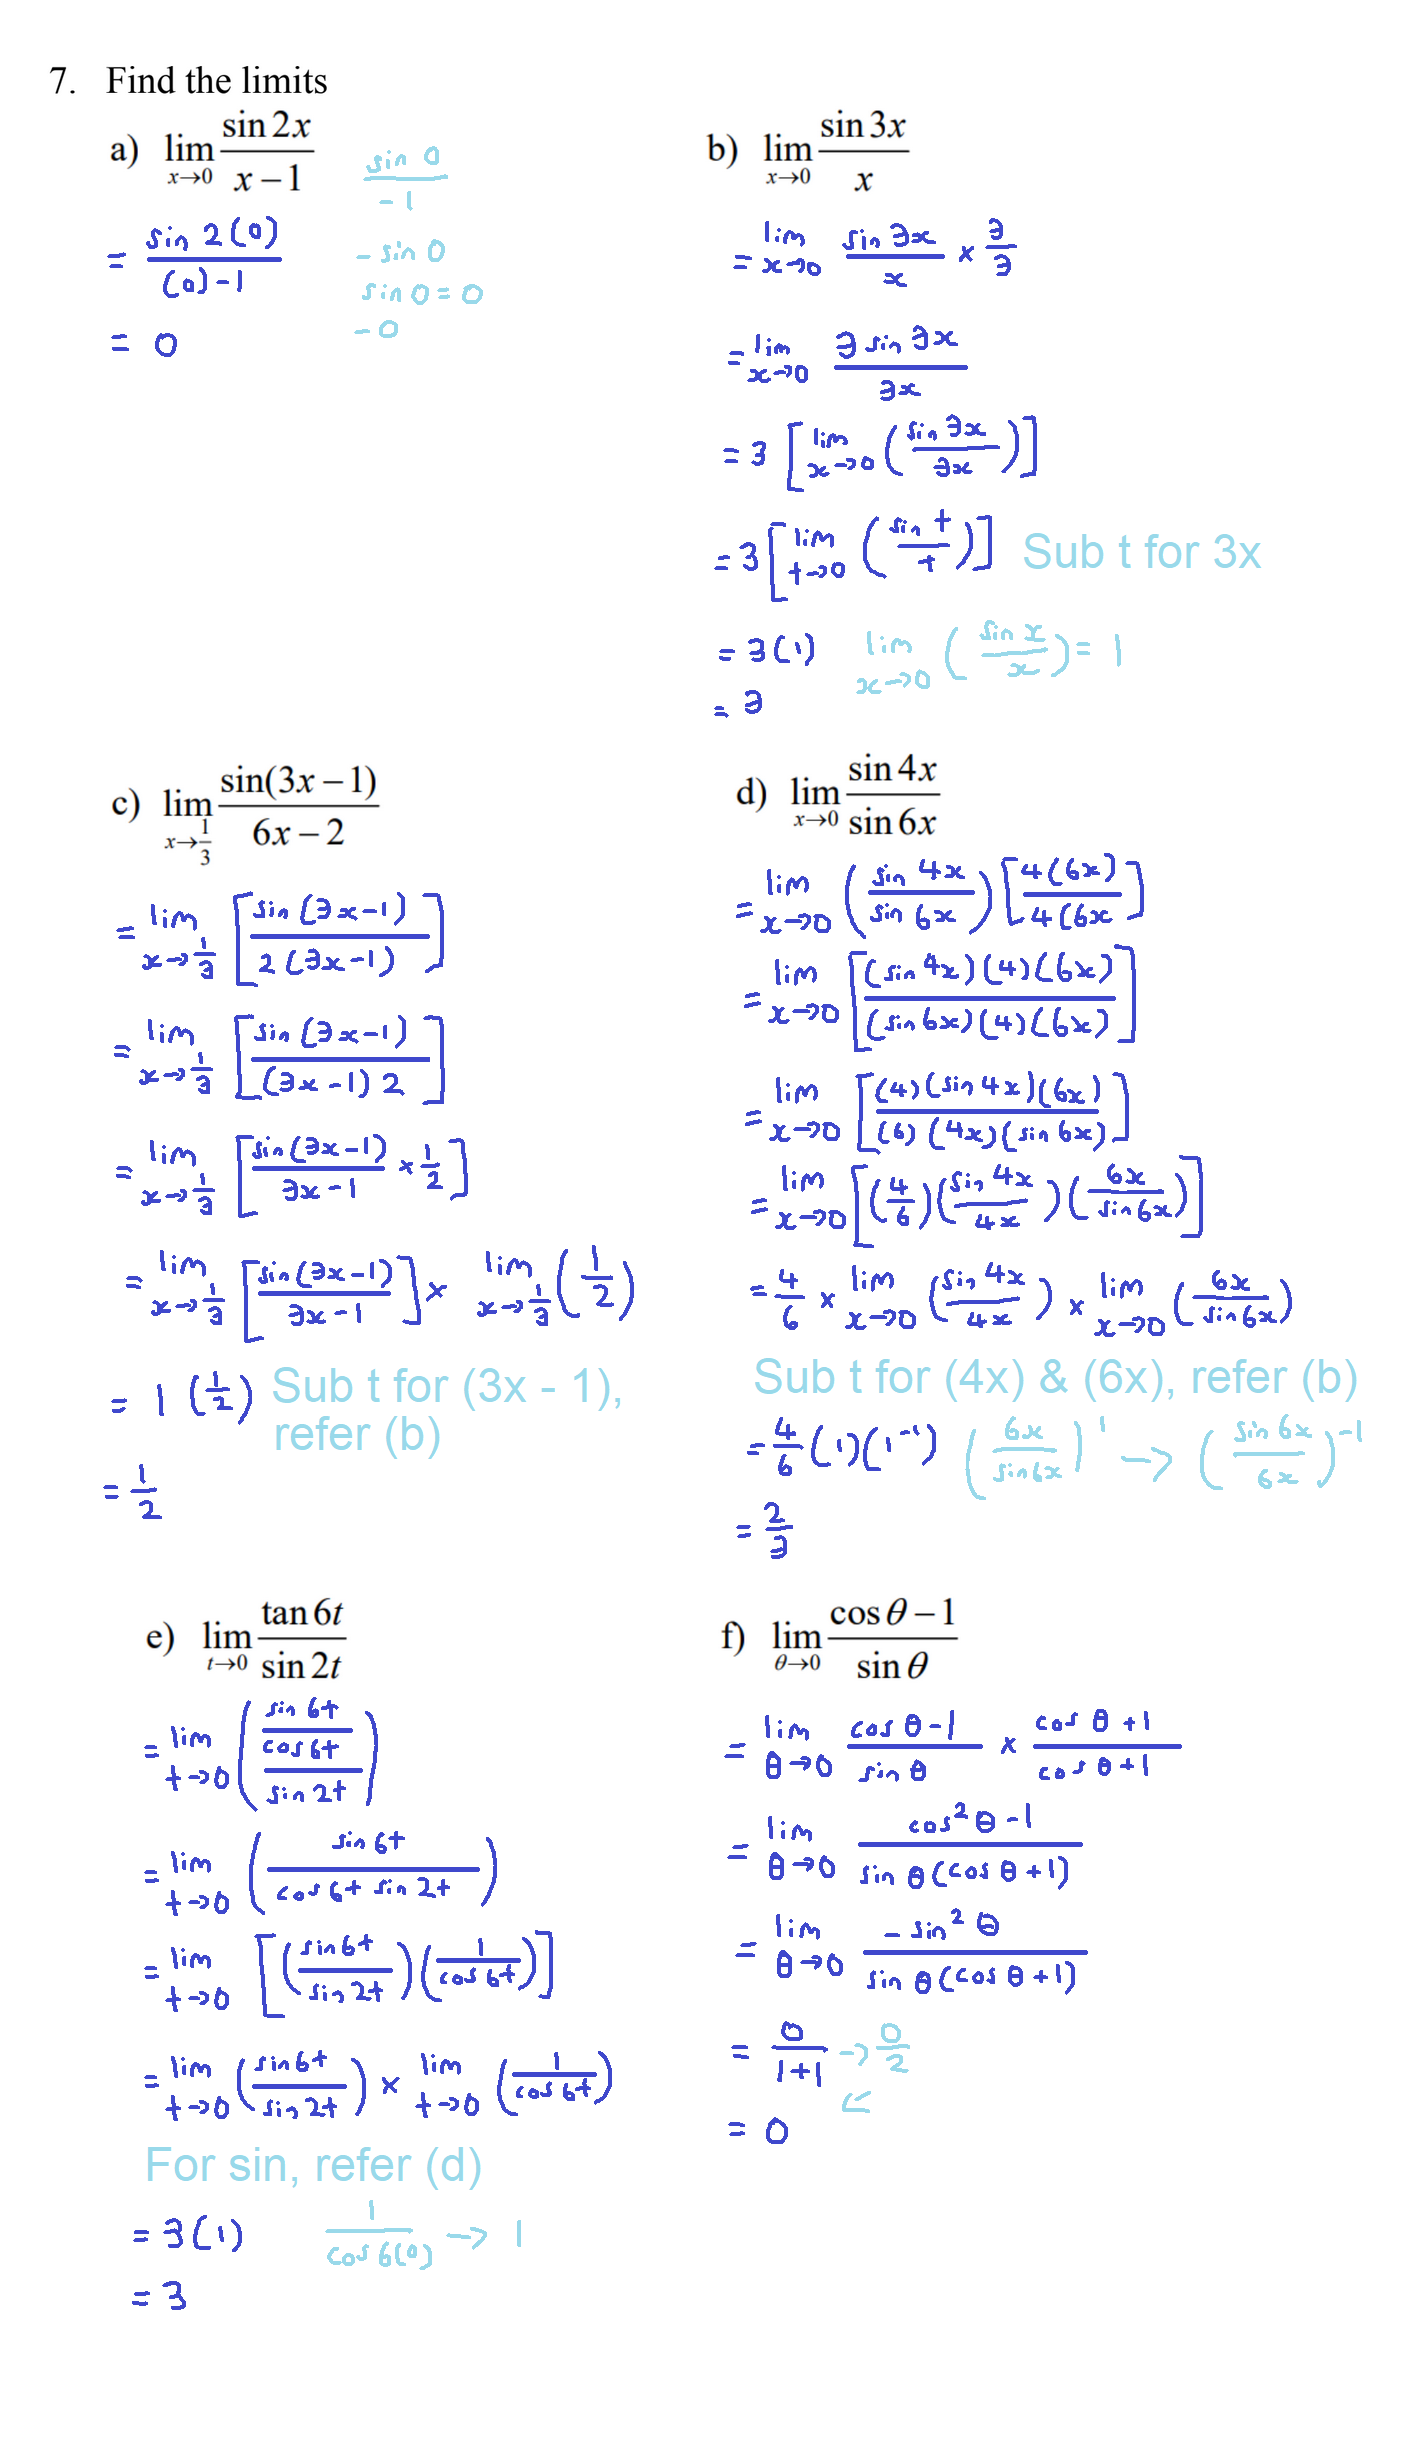 7. Find the limits
a) lim x→0 sin 2x / x − 1
sin 0 / −1
= sin 2(0) / (0)−1
− sin 0
sin 0 = 0
= 0
−0
b) lim x→0 sin 3x / x
= lim x→0 sin 3x / x × 3/3
= lim x→0 3 sin 3x / 3x
= 3 [ lim x→0 ( sin 3x / 3x ) ]
= 3 [ lim t→0 ( sin t / t ) ] Sub t for 3x
= 3(1) lim x→0 ( sin x / x ) = 1
= 3
c) lim x→1/3 sin(3x − 1) / 6x − 2
= lim x→1/3 [ sin (3x−1) / 2 (3x−1) ]
= lim x→1/3 [ sin (3x−1) / (3x−1) 2 ]
= lim x→1/3 [ sin (3x−1) / 3x−1 × 1/2 ]
= lim x→1/3 [ sin (3x−1) / 3x−1 ] × lim x→1/3 ( 1/2 )
= 1 ( 1/2 ) Sub t for (3x - 1),
refer (b)
= 1/2
d) lim x→0 sin 4x / sin 6x
= lim x→0 ( sin 4x / sin 6x ) [ 4(6x) / 4(6x ]
= lim x→0 [ (sin 4x)(4)(6x) / (sin 6x)(4)(6x) ]
= lim x→0 [ (4)(sin 4x)(6x) / (6)(4x)(sin 6x) ]
= lim x→0 [ (4/6) ( sin 4x / 4x ) ( 6x / sin 6x ) ]
= 4/6 × lim x→0 ( sin 4x / 4x ) × lim x→0 ( 6x / sin 6x )
Sub t for (4x) & (6x), refer (b)
= 4/6 (1)(1⁻¹) ( 6x / sin 6x )¹ → ( sin 6x / 6x )⁻¹
= 2/3
e) lim t→0 tan 6t / sin 2t
= lim t→0 ( sin 6t / cos 6t / sin 2t )
= lim t→0 ( sin 6t / cos 6t sin 2t )
= lim t→0 [ ( sin 6t / sin 2t ) ( 1 / cos 6t ) ]
= lim t→0 ( sin 6t / sin 2t ) × lim t→0 ( 1 / cos 6t )
For sin, refer (d)
= 3(1) 1 / cos 6(0) → 1
= 3
f) lim θ→0 cos θ − 1 / sin θ
= lim θ→0 cos θ −1 / sin θ × cos θ +1 / cos θ +1
= lim θ→0 cos² θ −1 / sin θ (cos θ +1)
= lim θ→0 − sin² θ / sin θ (cos θ +1)
= 0 / 1+1 → 0/2
←
= 0